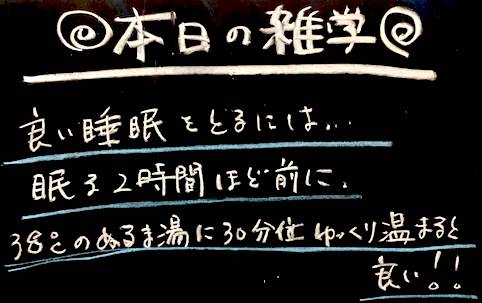 本日の雑学
良い睡眠をとるには...
眠る2時間ほど前に、
38℃のぬるま湯に30分位ゆっくり温まると
良い!!